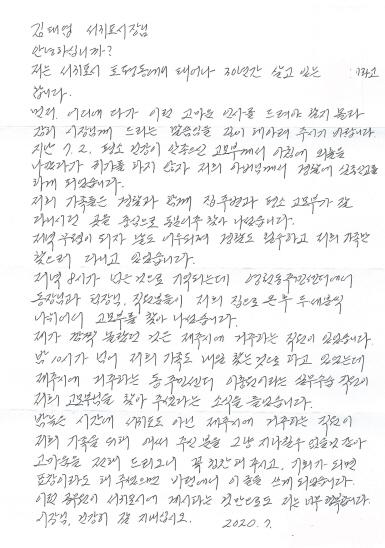 김태엽 서귀포시장님
안녕하십니까?
저는 서귀포시 토평동에 태어나 30년간 살고 있는 이라고
합니다.
먼저, 어디에 다가 이런 고마운 인사를 드려야 할지 몰라
감히 시장님께 드리는 말씀임을 깊이 헤아려 주시기 바랍니다.
지난 7. 2. 평소 건강이 안좋으신 고모부께서 아침에 외출을
나갔다가 귀가를 하지 않자 저희 아버님께서 경찰에 실종신고를
하게 되었습니다.
저희 가족들은 경찰과 함께 집주변과 평소 고모부가 잘
다니시던 곳을 중심으로 동분서주 찾아 나섰습니다.
저녁 무렵이 되자 날도 어두워져 경찰도 철수하고 저희 가족만
찾으러 다니고 있었습니다.
저녁 8시가 넘은 것으로 기억되는데 영천동주민센터에서
동장님과 팀장님, 직원분들이 저희 집으로 온 후 두세명씩
나뉘어서 고모부를 찾아 나섰습니다.
제가 깜짝 놀랐던 것은 제주시에 거주하는 직원이 있었습니다.
밤 10시가 넘어 저희 가족도 내일 찾는것으로 하고 있었는데
제주시에 거주하는 동 주민센터 이라는 실무수습 직원이
저희 고모부님을 찾아 주셨다는 소식을 들었습니다.
밤늦은 시간에 서귀포도 아닌 제주시에 거주하는 직원이
저희 가족을 위해 애써 주신 분을 그냥 지나칠수 없을것 같아
고마움을 전해 드리오니 꼭 칭찬해 주시고, 기회가 되면
표창이라도 해 주셨으면 바램에서 이 글을 쓰게 되었습니다.
이런 공무원이 서귀포시에 계시다는 것만으로도 저는 너무 행복합니다.
시장님, 건강히 잘 지내십시오. 2020. 7.